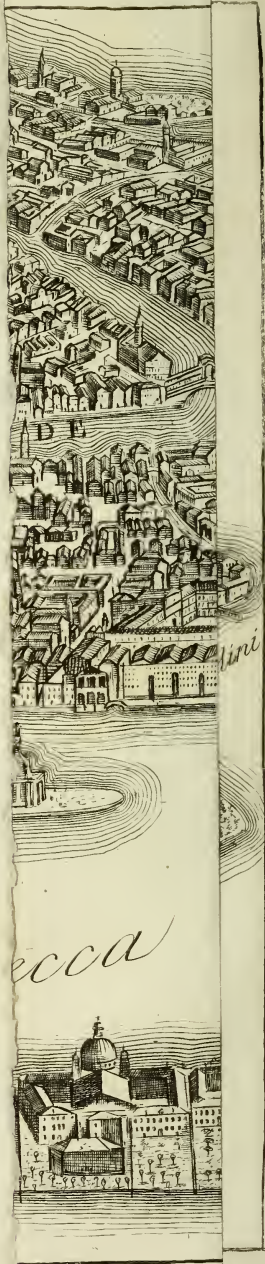 DE
lini
ecca